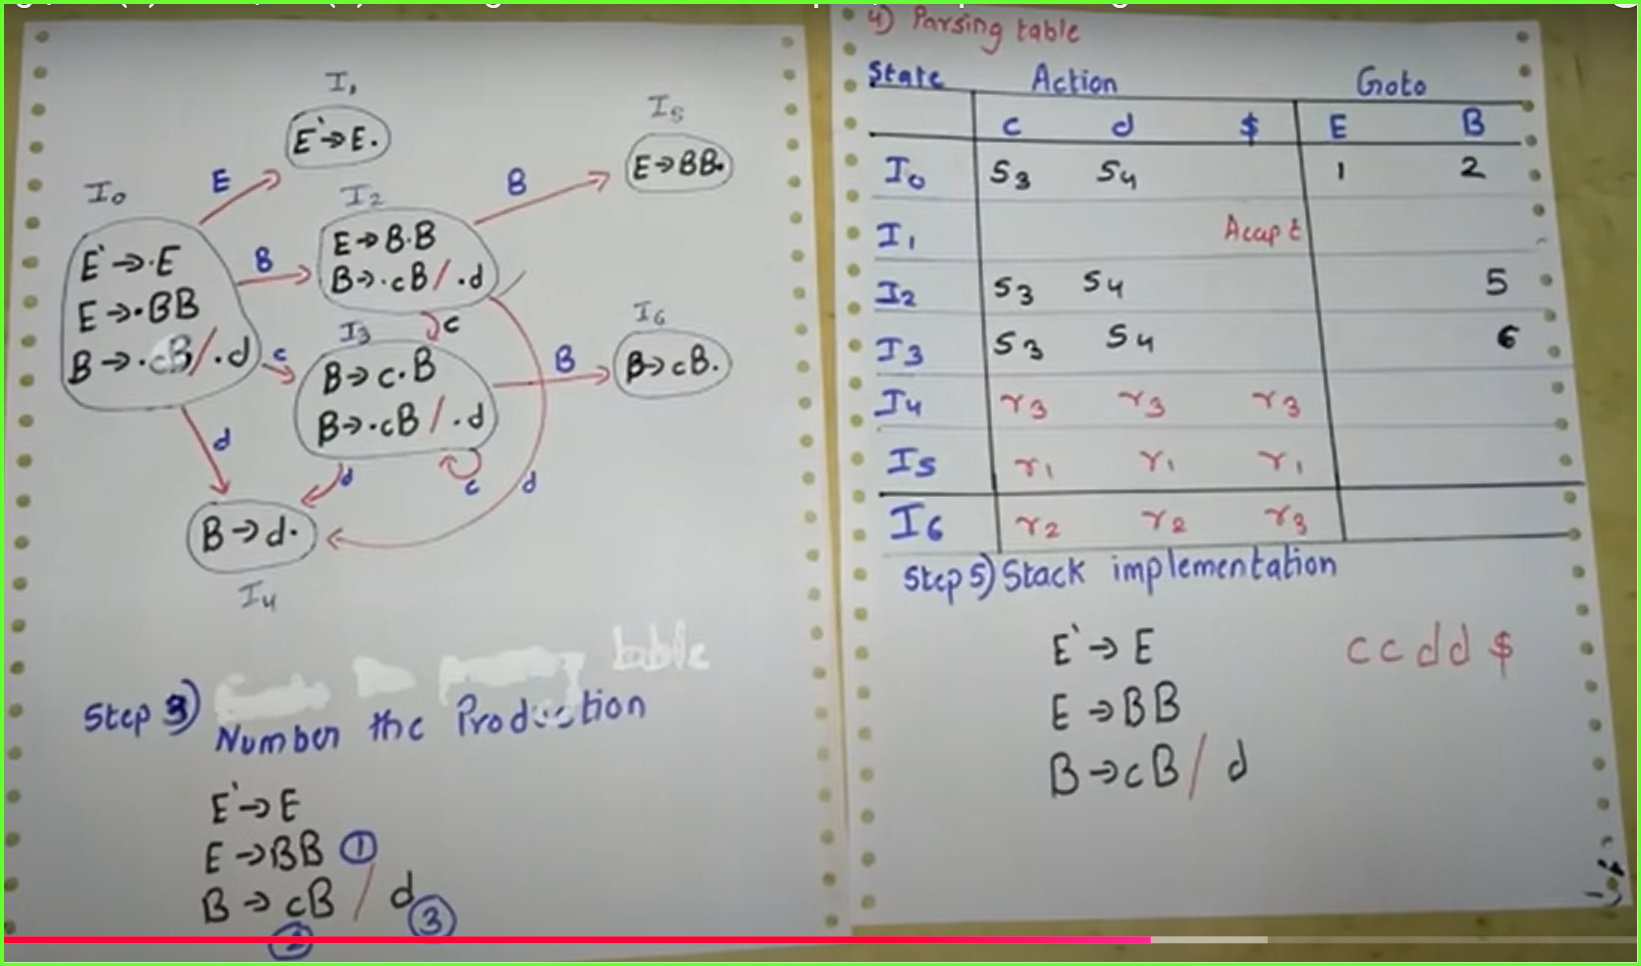 I₁
E`→E.
I₅
E→BB.
E
B
I₀
E`→.E
E→.BB
B→.cB/.d
B
I₂
E→B.B
B→.cB/.d
c
c
I₃
B→c.B
B→.cB/.d
B
I₆
B→cB.
d
d
c
d
B→d.
I₄
table
Step 3)
Number the Production
E`→E
E→BB ①
B→cB / d
② ③
4) Parsing table
State Action Goto
c d $ E B
I₀ S₃ S₄ 1 2
I₁ Accept
I₂ S₃ S₄ 5
I₃ S₃ S₄ 6
I₄ r₃ r₃ r₃
I₅ r₁ r₁ r₁
I₆ r₂ r₂ r₃
Step 5) Stack implementation
E`→E c c d d $
E→BB
B→cB/ d